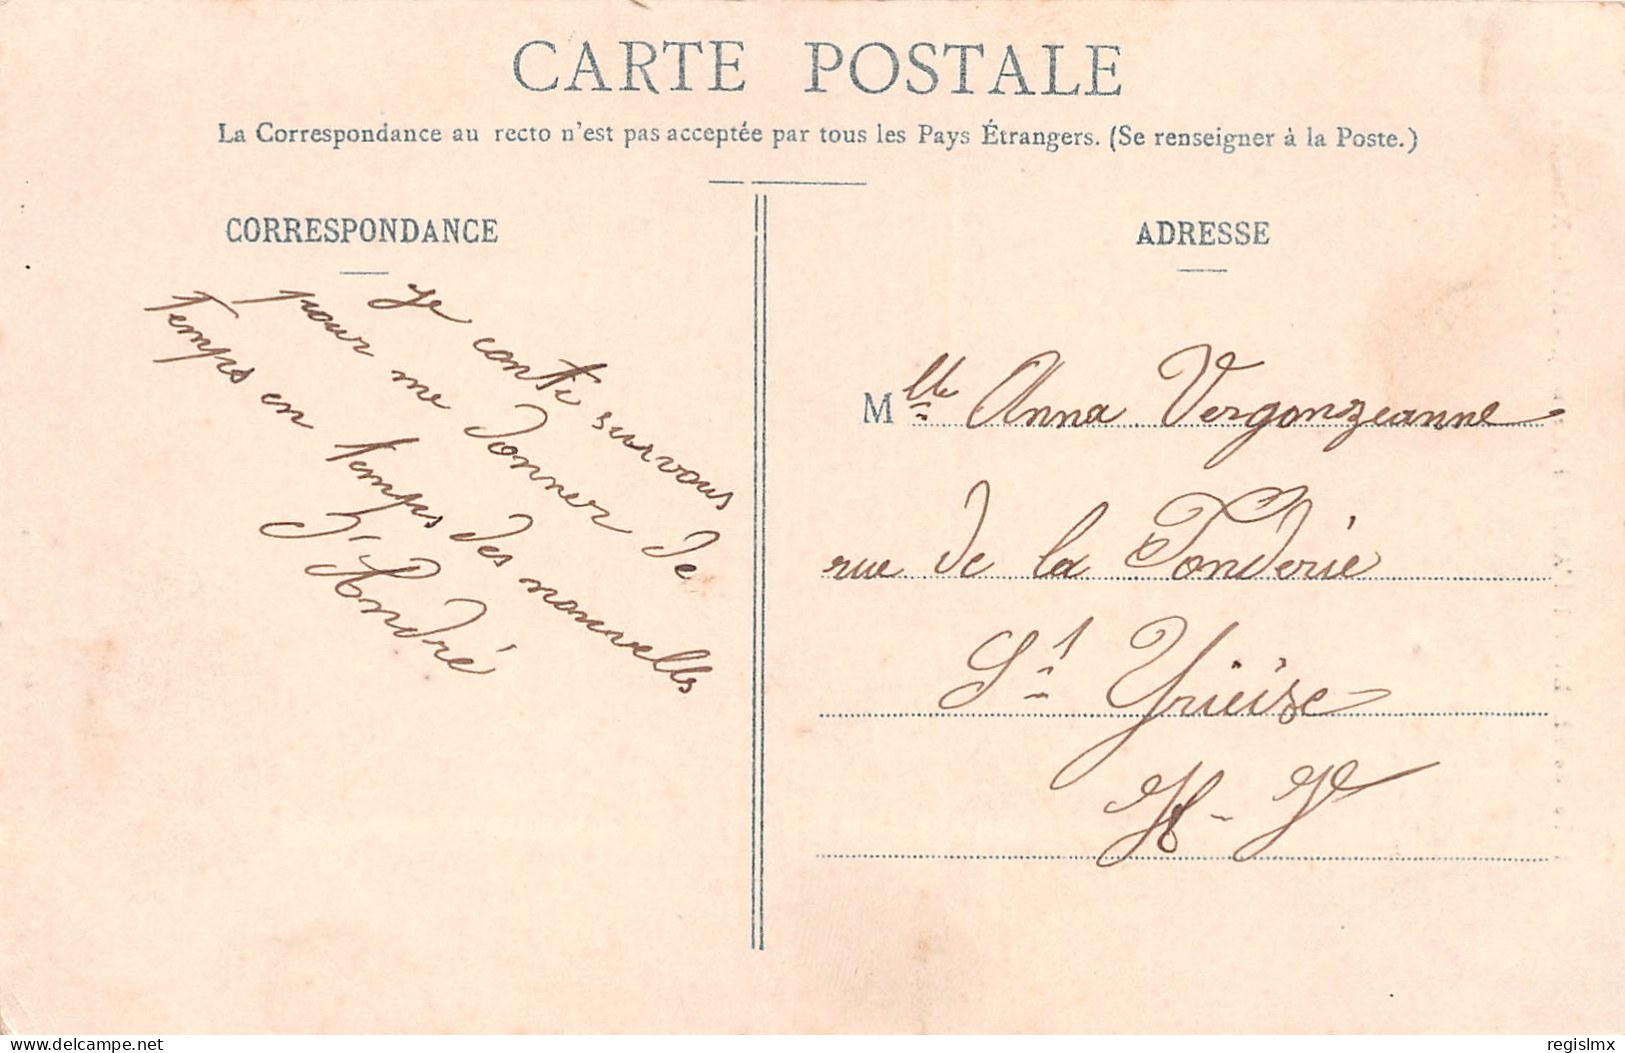 CARTE POSTALE
La Correspondance au recto n'est pas acceptée par tous les Pays Étrangers. (Se renseigner à la Poste.)
CORRESPONDANCE
je conte sur vous
pour me donner de
temps en temps des nouvelles
D'André
ADRESSE
Mlle Anna Vergonzeanne
rue de la Fonderie
St Yrieise
H-V
www.delcampe.net
regislmx